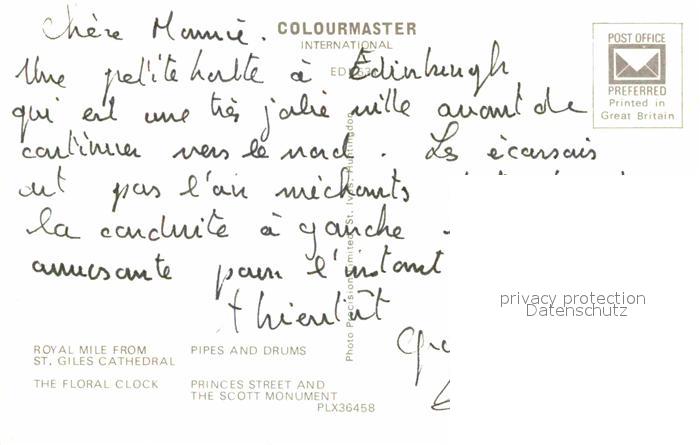 Chère Mammie.
COLOURMASTER
INTERNATIONAL
Une petite halte à Edinburgh
qui est une très jolie ville avant de
continuer vers le nord. Les écossais
ont pas l'air méchants
la conduite à gauche
amusante pour l'instant
POST OFFICE
PREFERRED
Printed in
Great Britain
Photo Precision Limited, St. Ives, Huntingdon
privacy protection
Datenschutz
ROYAL MILE FROM
ST. GILES CATHEDRAL
PIPES AND DRUMS
THE FLORAL CLOCK
PRINCES STREET AND
THE SCOTT MONUMENT
PLX36458